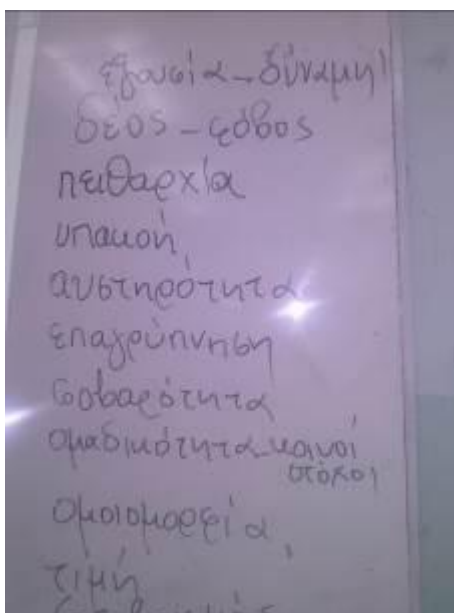 εξουσία - δύναμη
δέος - φόβος
πειθαρχία
υπακοή
αυστηρότητα
επαγρύπνηση
σοβαρότητα
ομαδικότητα - κοινοί
στόχοι
ομοιομορφία
τιμή